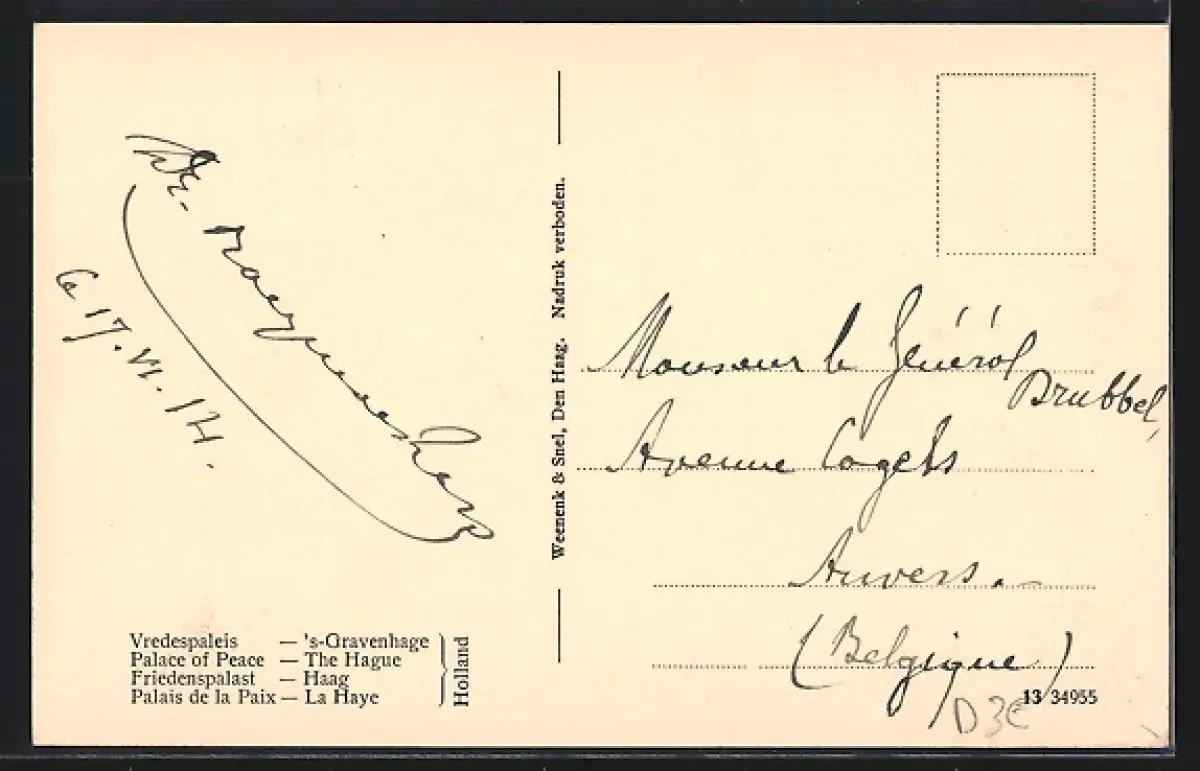 Dr.
Le 17. VI. 14.
Vredespaleis — 's-Gravenhage
Palace of Peace — The Hague
Friedenspalast — Haag
Palais de la Paix — La Haye
Holland
Weenenk & Snel, Den Haag. Nadruk verboden.
Monsieur le Général
Brubbel,
Avenue Cogels
Anvers.
(Belgique)
13 34955
D 3€